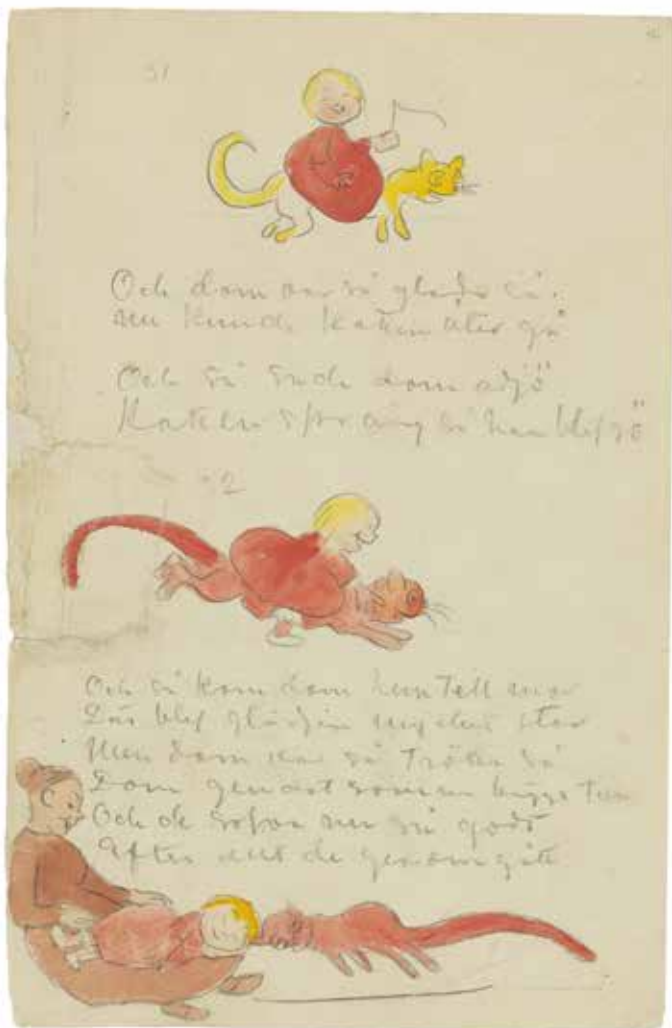 Och dom var så glada så.
nu kunde katten åter gå
Och så sade dom adjö
Katten sprang så han blef rö
Och så kom dom hem till mor
Där blef glädjen mycket stor
Men dom var så trötta så
Dom genast somna bägge två
Och de sofva nu så godt
Efter allt de genomgåt